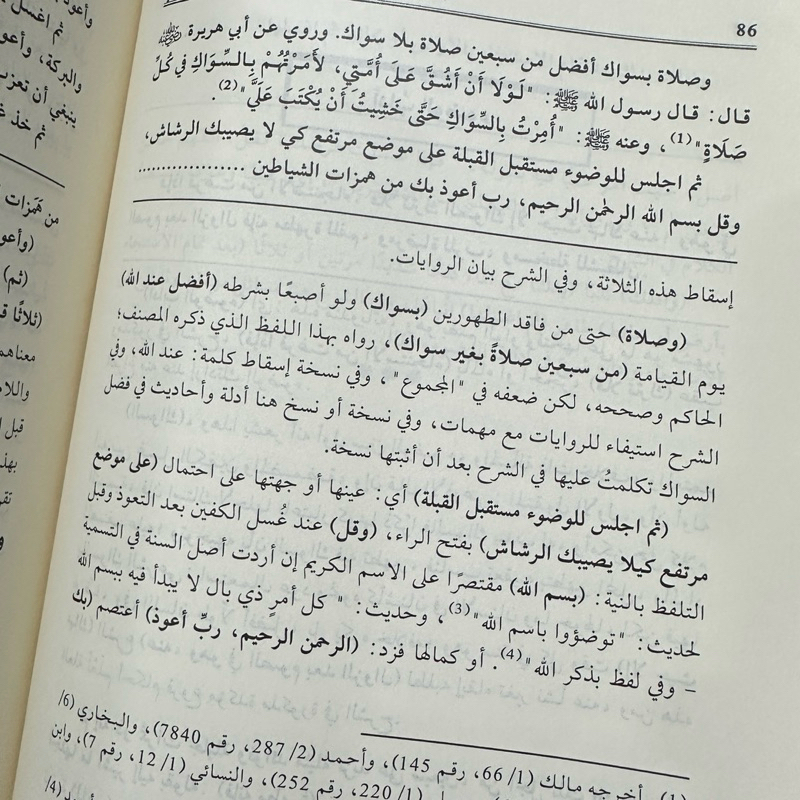 86
وصلاة بسواك أفضل من سبعين صلاة بلا سواك. وروي عن أبي هريرة ﷺ
قال: قال رسول الله ﷺ: "لَوْلَا أَنْ أَشُقَّ عَلَى أُمَّتِي، لأَمَرْتُهُمْ بِالسِّوَاكِ فِي كُلِّ
صَلَاةٍ"(1)، وعنه ﷺ: "أُمِرْتُ بِالسِّوَاكِ حَتَّى خَشِيتُ أَنْ يُكْتَبَ عَلَيَّ"(2).
ثم اجلس للوضوء مستقبل القبلة على موضع مرتفع كي لا يصيبك الرشاش،
وقل بسم الله الرحمن الرحيم، رب أعوذ بك من همزات الشياطين ..................
إسقاط هذه الثلاثة، وفي الشرح بيان الروايات.
(وصلاة) حتى من فاقد الطهورين (بسواك) ولو أصبعًا بشرطه (أفضل عند الله)
يوم القيامة (من سبعين صلاةً بغير سواك)، رواه بهذا اللفظ الذي ذكره المصنف؛
الحاكم وصححه، لكن ضعفه في "المجموع"، وفي نسخة إسقاط كلمة: عند الله، وفي
الشرح استيفاء للروايات مع مهمات، وفي نسخة أو نسخ هنا أدلة وأحاديث في فضل
السواك تكلمتُ عليها في الشرح بعد أن أثبتها نسخة.
(ثم اجلس للوضوء مستقبل القبلة) أي: عينها أو جهتها على احتمال (على موضع
مرتفع كيلا يصيبك الرشاش) بفتح الراء، (وقل) عند غُسل الكفين بعد التعوذ وقبل
التلفظ بالنية: (بسم الله) مقتصرًا على الاسم الكريم إن أردت أصل السنة في التسمية
لحديث: "توضؤوا باسم الله"(3)، وحديث: "كل أمرٍ ذي بال لا يبدأ فيه ببسم الله
– وفي لفظ بذكر الله"(4). أو كمالها فزد: (الرحمن الرحيم، ربِّ أعوذ) أعتصم (بك
(1) أخرجه مالك (1/ 66، رقم 145)، وأحمد (2/ 287، رقم 7840)، والبخاري (6/
(1/ 220، رقم 252)، والنسائي (1/ 12، رقم 7)، وابن